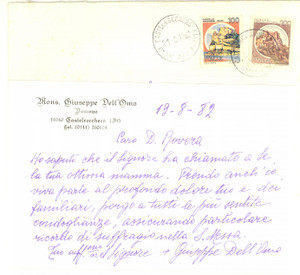 200
200
Mons. Giuseppe Dell'Omo
Vescovo
19-8-82
Caro D. Rovera
Ho saputo che il Signore ha chiamato a Sé
la tua ottima mamma. Prendo anch'io
viva parte al profondo dolore tuo e dei
familiari, porgo a tutti le più sentite
condoglianze, assicurando particolare
ricordo di suffragio nella S. Messa.
Tuo aff.mo nel Signore + Giuseppe Dell'Omo